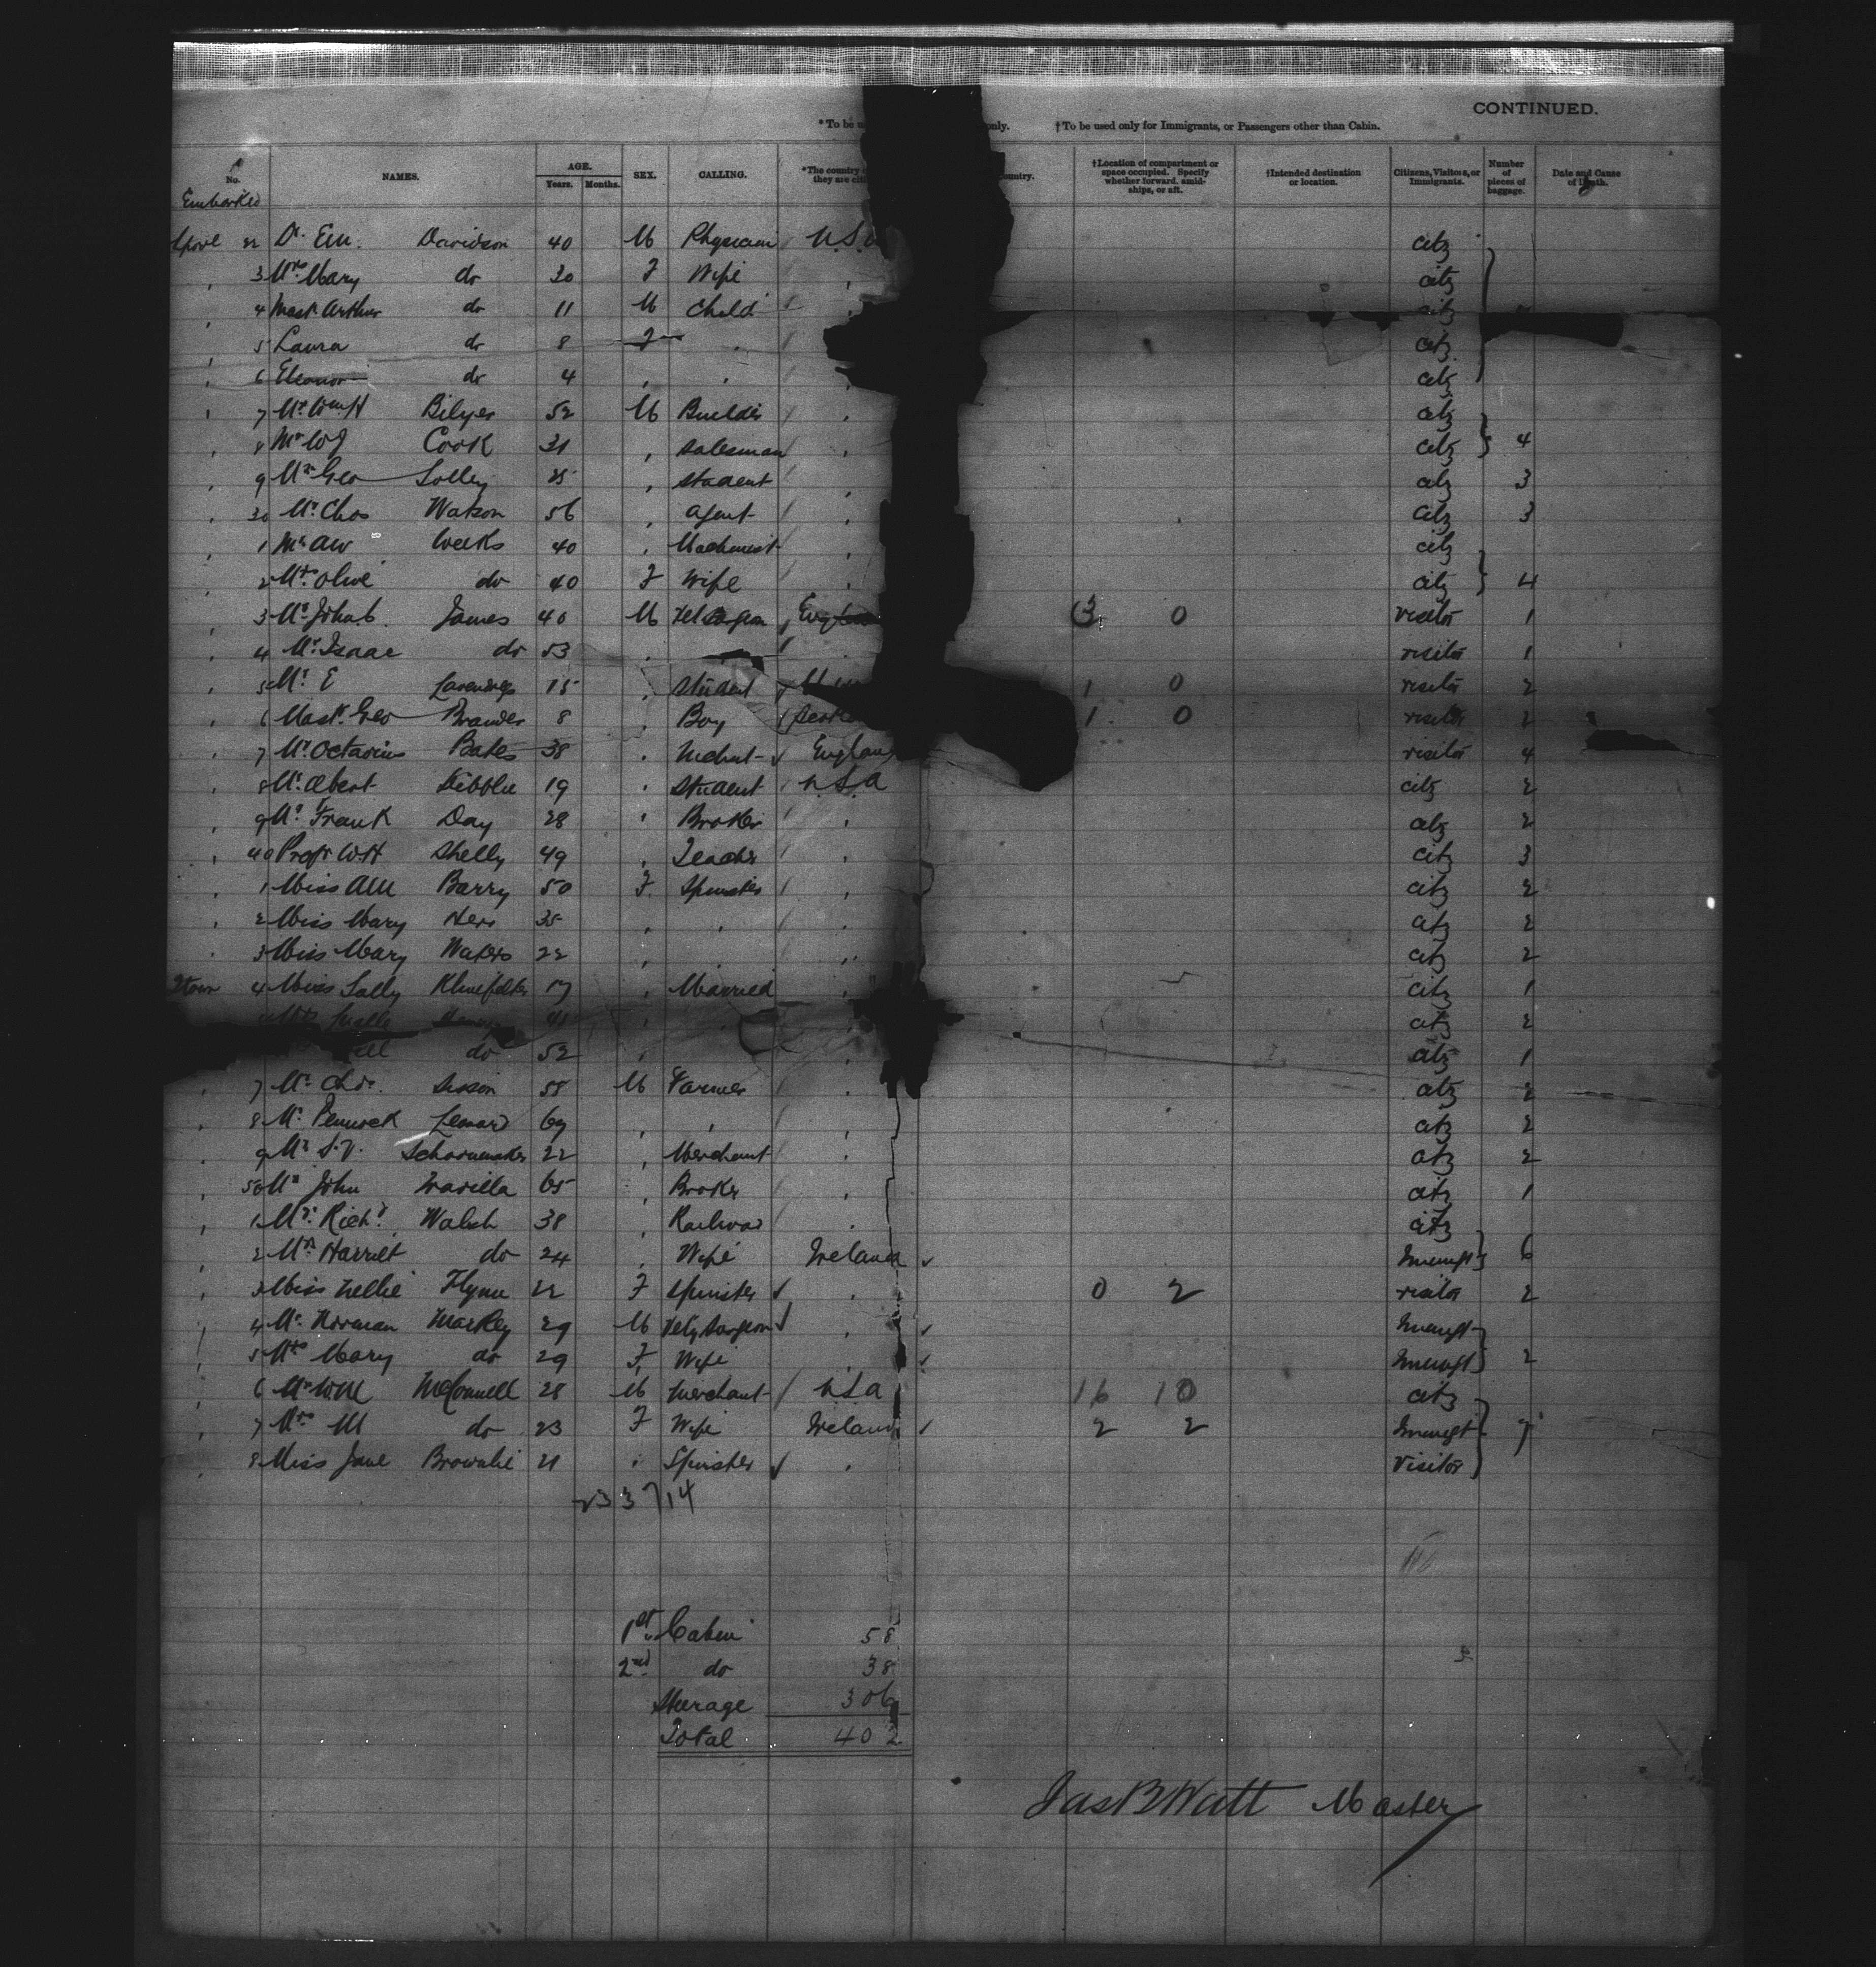 CONTINUED.
*To be only. †To be used only for Immigrants, or Passengers other than Cabin.
No. NAMES. AGE. Years. Months. SEX. CALLING. *The country they are country. †Location of compartment or space occupied. Specify whether forward, amid-ships, or aft. †Intended destination or location. Citizens, Visitors, or Immigrants. Number of pieces of baggage. Date and Cause of Death.
Embarked
Lpool 22 Dr. Em. Davidson 40 M Physician U.S. citz
3 Mrs. Mary do 30 F Wife citz
4 Mast. Arthur do 11 M Child citz
5 Laura do 8 F citz
6 Eleanor do 4 citz
7 Mr. Wm H Bilyer 52 M Builder citz
8 Mr. W J Cook 31 Salesman citz 4
9 Mr. Geo Solley 25 Student citz 3
30 Mr. Chas Watson 56 Agent citz 3
1 Mr. AW Weeks 40 Machinist citz
2 Mrs. Olive do 40 F Wife citz 4
3 Mr. James 40 M England 3 0 visitor 1
4 Mr. Isaac do 53 visitor 1
5 Mr. E 15 Student 1 0 visitor 2
6 Mast. Geo Brander 8 Boy 1 0 visitor 2
7 Mr. Octavius Bates 38 England visitor 4
8 Mr. Albert Dibblee 19 Student U.S.A citz 2
9 Mr. Frank Day 28 Broker citz 2
40 Profr. WH Shelly 49 Teacher citz 3
1 Miss AM Barry 50 F Spinster citz 2
2 Miss Mary 35 citz 2
3 Miss Mary Waters 22 citz 2
Qtown 4 Miss Sally Klinefelter 17 Married citz 1
41 citz 2
do 52 citz 1
7 Mr. Chas. 55 M Farmer citz 2
8 Mr. Lenard 69 citz 2
9 Mr. S.V. Schoonmaker 22 Merchant citz 2
50 Mr. John Travilla 65 Broker citz 1
1 Mr. Richd. Walsh 38 Railroad citz
2 Mrs. Harriet do 24 Wife Ireland Immgt 6
3 Miss Nellie Flynn 22 F Spinster 0 2 visitor 2
4 Mr. Norman Markey 29 M Vety Surgeon Immgt
5 Mrs. Mary do 29 F Wife Immgt 2
6 Mr. WM McConnell 28 M Merchant U.S.A 16 10 citz
7 Mrs. M do 23 F Wife Ireland 2 2 Immgt 7
8 Miss Jane Brownlie 21 Spinster Visitor
23 3 7 14
1st. Cabin 58
2nd. do 38
Steerage 306
Total 402
Jas B Watt Master